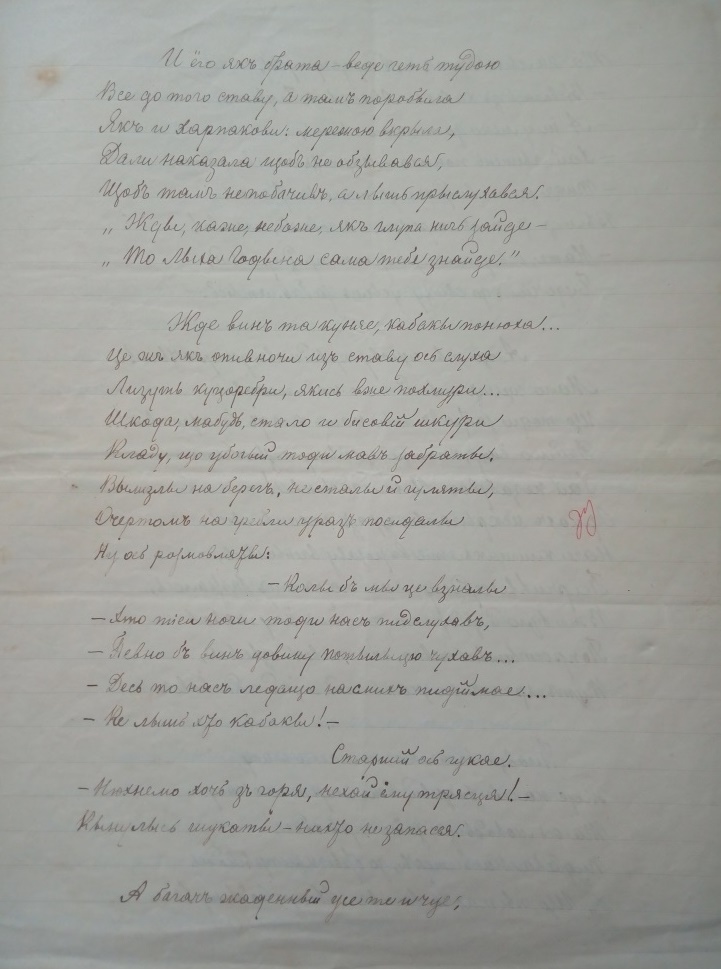 И ёго якъ брата – веде геть тудою
Все до того ставу, а тамъ поробыла
Якъ и Харпакови: мережою вкрыла,
Дали наказала щобъ не обзывався,
Щобъ тамъ не побачивъ, а лышь прыслухався.
„ Жды, каже, небоже, якъ глупа ничъ зайде –
„ То Лыха Годына сама тебе знайде."
Жде винъ та куняе, кабакы понюха...
Це жъ якъ опивночи изъ ставу ось слуха
Лизуть куцоребри, якись вже похмури...
Шкода, мабудь, стало ти бисовій шкури
Кладу, що убогый тоди мавъ забраты.
Вылизлы на берегъ, не сталы й гуляты,
Очертомъ на гребли зразъ посидалы
Ну ось розмовляты:
– Колы бъ мы це взналы
– Хто тіеи ночи тоди насъ пидслухавъ,
– Певно бъ винъ довику потылыцю чухавъ...
– Десь то насъ ледащо на смихъ пидіймае...
– Не лышь хто кабакы! –
Старший ось гукае.
– Нюхнемо хочъ зъ горя, нехай ёму трясця! –
Кынулысь шукаты – нихто не запасся.
А багачъ жаденный усе те й чуе,